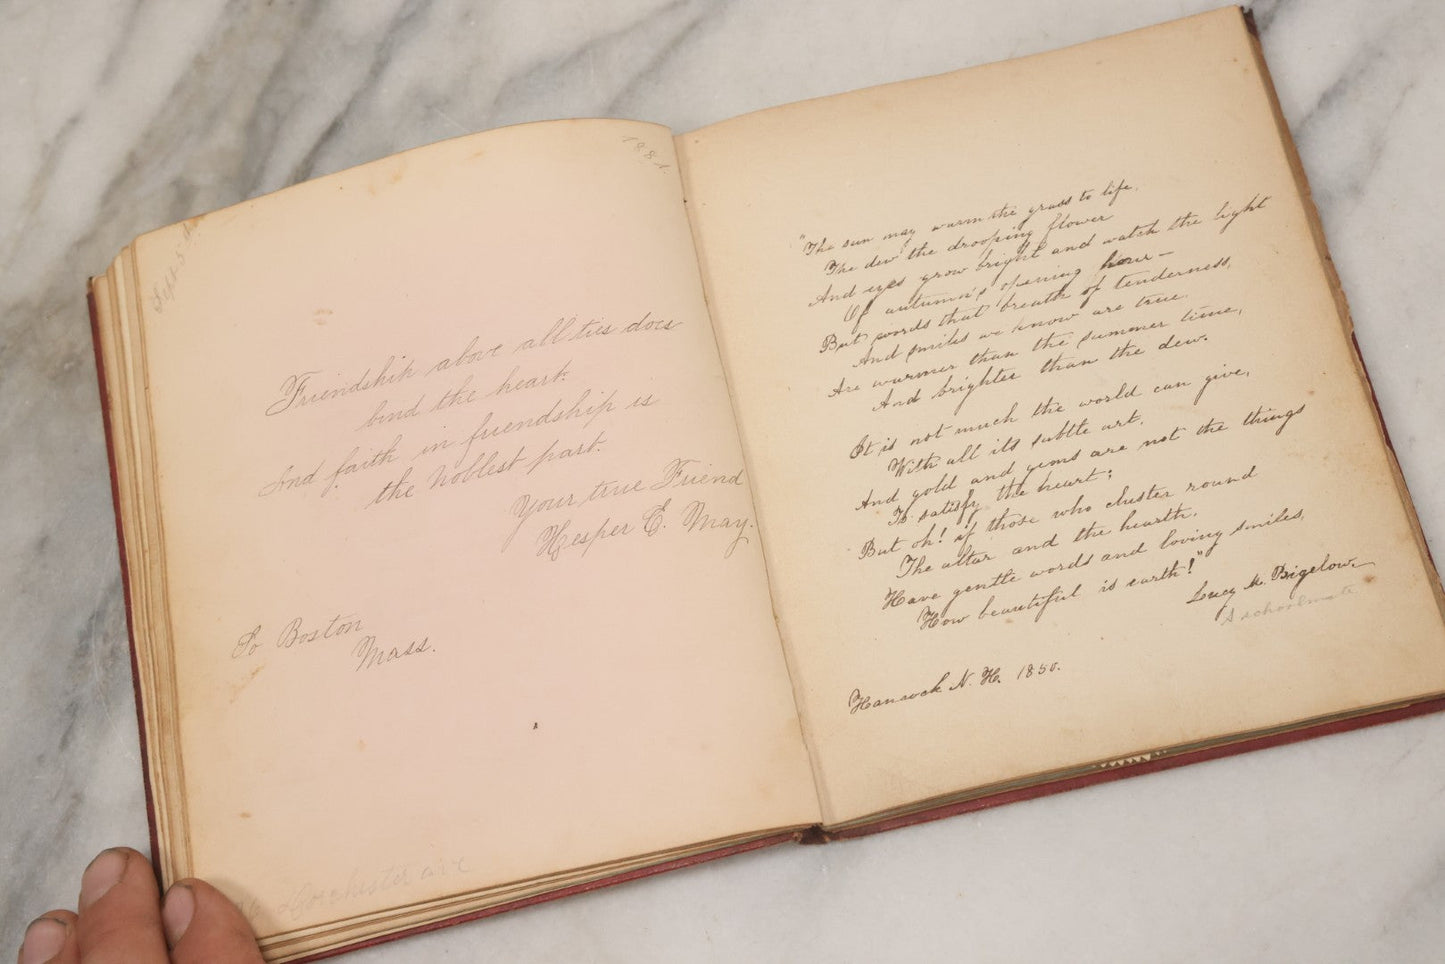 1881.
Sept 5
Friendship above all ties does
bind the heart.
And faith in friendship is
the noblest part.
Your true Friend
Hesper E. May.
So Boston
Mass.
Dorchester ave
"The sun may warm the grass to life,
The dew the drooping flower
And eyes grow bright and watch the light
Of autumn's opening hour—
But words that breath of tenderness,
And smiles we know are true.
Are warmer than the summer time,
And brighter than the dew.
It is not much the world can give,
With all its subtle art,
And gold and gems are not the things
To satisfy the heart;
But oh! if those who cluster round
The altar and the hearth.
Have gentle words and loving smiles,
How beautiful is earth!"
Lucy M. Bigelow.
A schoolmate
Hancock N. H. 1850.